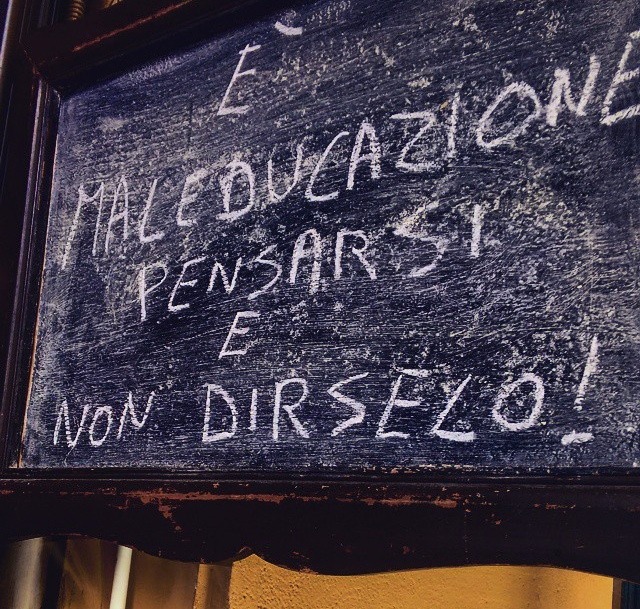 È
MALEDUCAZIONE
PENSARSI
E
NON DIRSELO!